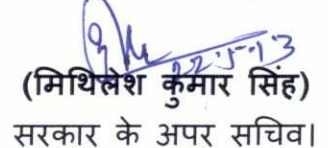 22.5.13
(मिथिलेश कुमार सिंह)
सरकार के अपर सचिव।